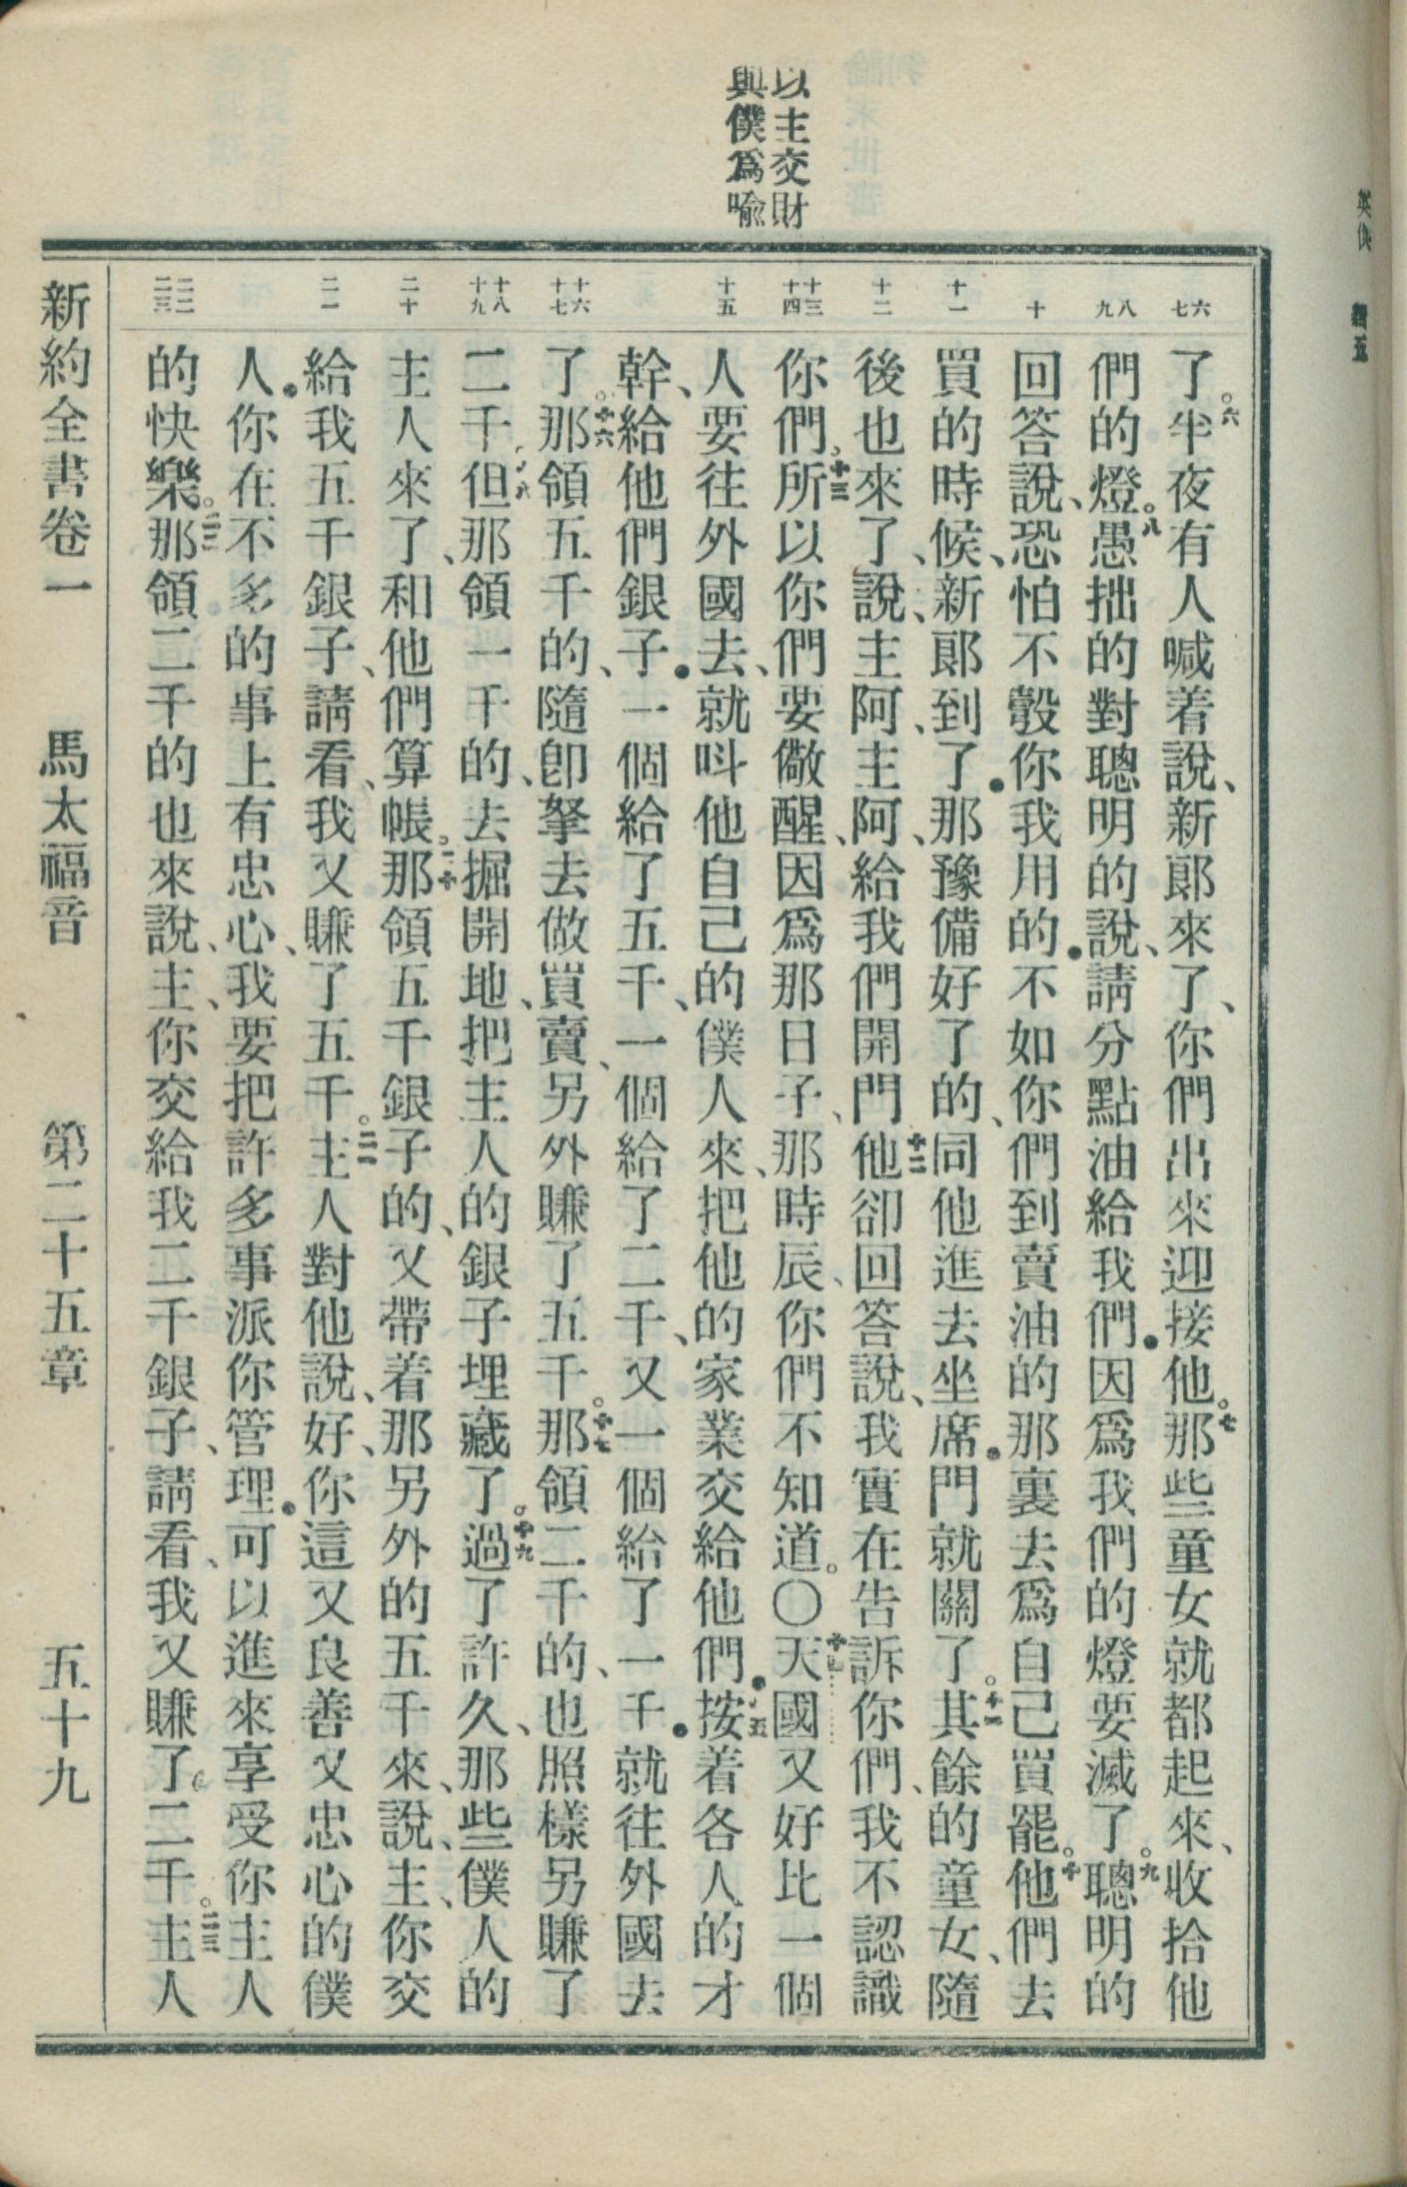 以主交財
與僕爲喩
六 七
八 九
十
十一
十二
十三 十四
十五
十六 十七
十八 十九
二十
二一
二二 二三
了。六半夜有人喊着說、新郞來了、你們出來迎接他。七那些童女就都起來、收拾他
們的燈。八愚拙的對聰明的說、請分點油給我們．因爲我們的燈要滅了。九聰明的
回答說、恐怕不彀你我用的．不如你們到賣油的那裏去爲自己買罷。十他們去
買的時候、新郞到了．那豫備好了的、同他進去坐席．門就關了。十一其餘的童女、隨
後也來了、說、主阿、主阿、給我們開門十二他卻回答說、我實在告訴你們、我不認識
你們。十三所以你們要儆醒、因爲那日子、那時辰、你們不知道。〇十四天國又好比一個
人要往外國去、就呌他自己的僕人來、把他的家業交給他們．十五按着各人的才
幹、給他們銀子．一個給了五千、一個給了二千、又一個給了一千．就往外國去
了。十六那領五千的、隨卽拏去做買賣、另外賺了五千。十七那領二千的、也照樣另賺了
二千十八但那領一千的、去掘開地、把主人的銀子埋藏了。十九過了許久、那些僕人的
主人來了、和他們算帳。二十那領五千銀子的、又帶着那另外的五千來、說、主、你交
給我五千銀子、請看、我又賺了五千。二一主人對他說、好、你這又良善又忠心的僕
人．你在不多的事上有忠心、我要把許多事派你管理．可以進來享受你主人
的快樂。二二那領二千的也來說、主、你交給我二千銀子、請看、我又賺了二千。二三主人
新約全書卷一 馬太福音 第二十五章 五十九